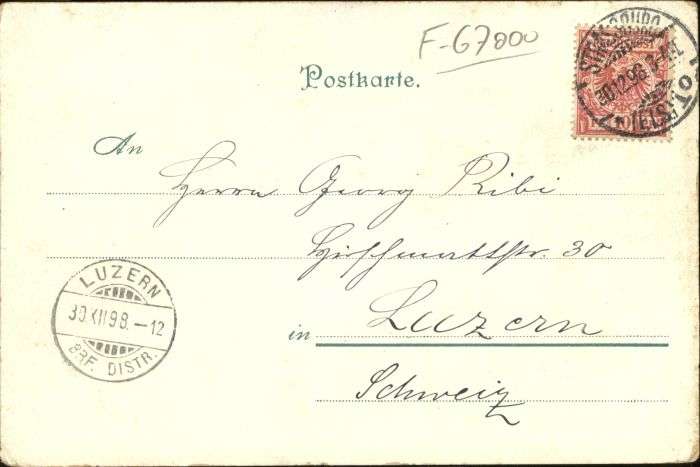 F-67000
Postkarte.
STRASSBURG
30.12.98
(ELS.)
An
Herrn Georg Ribi
Hirschmattstr. 30
in Luzern
Schweiz
LUZERN
30.XII.98.–12
BRF. DISTR.